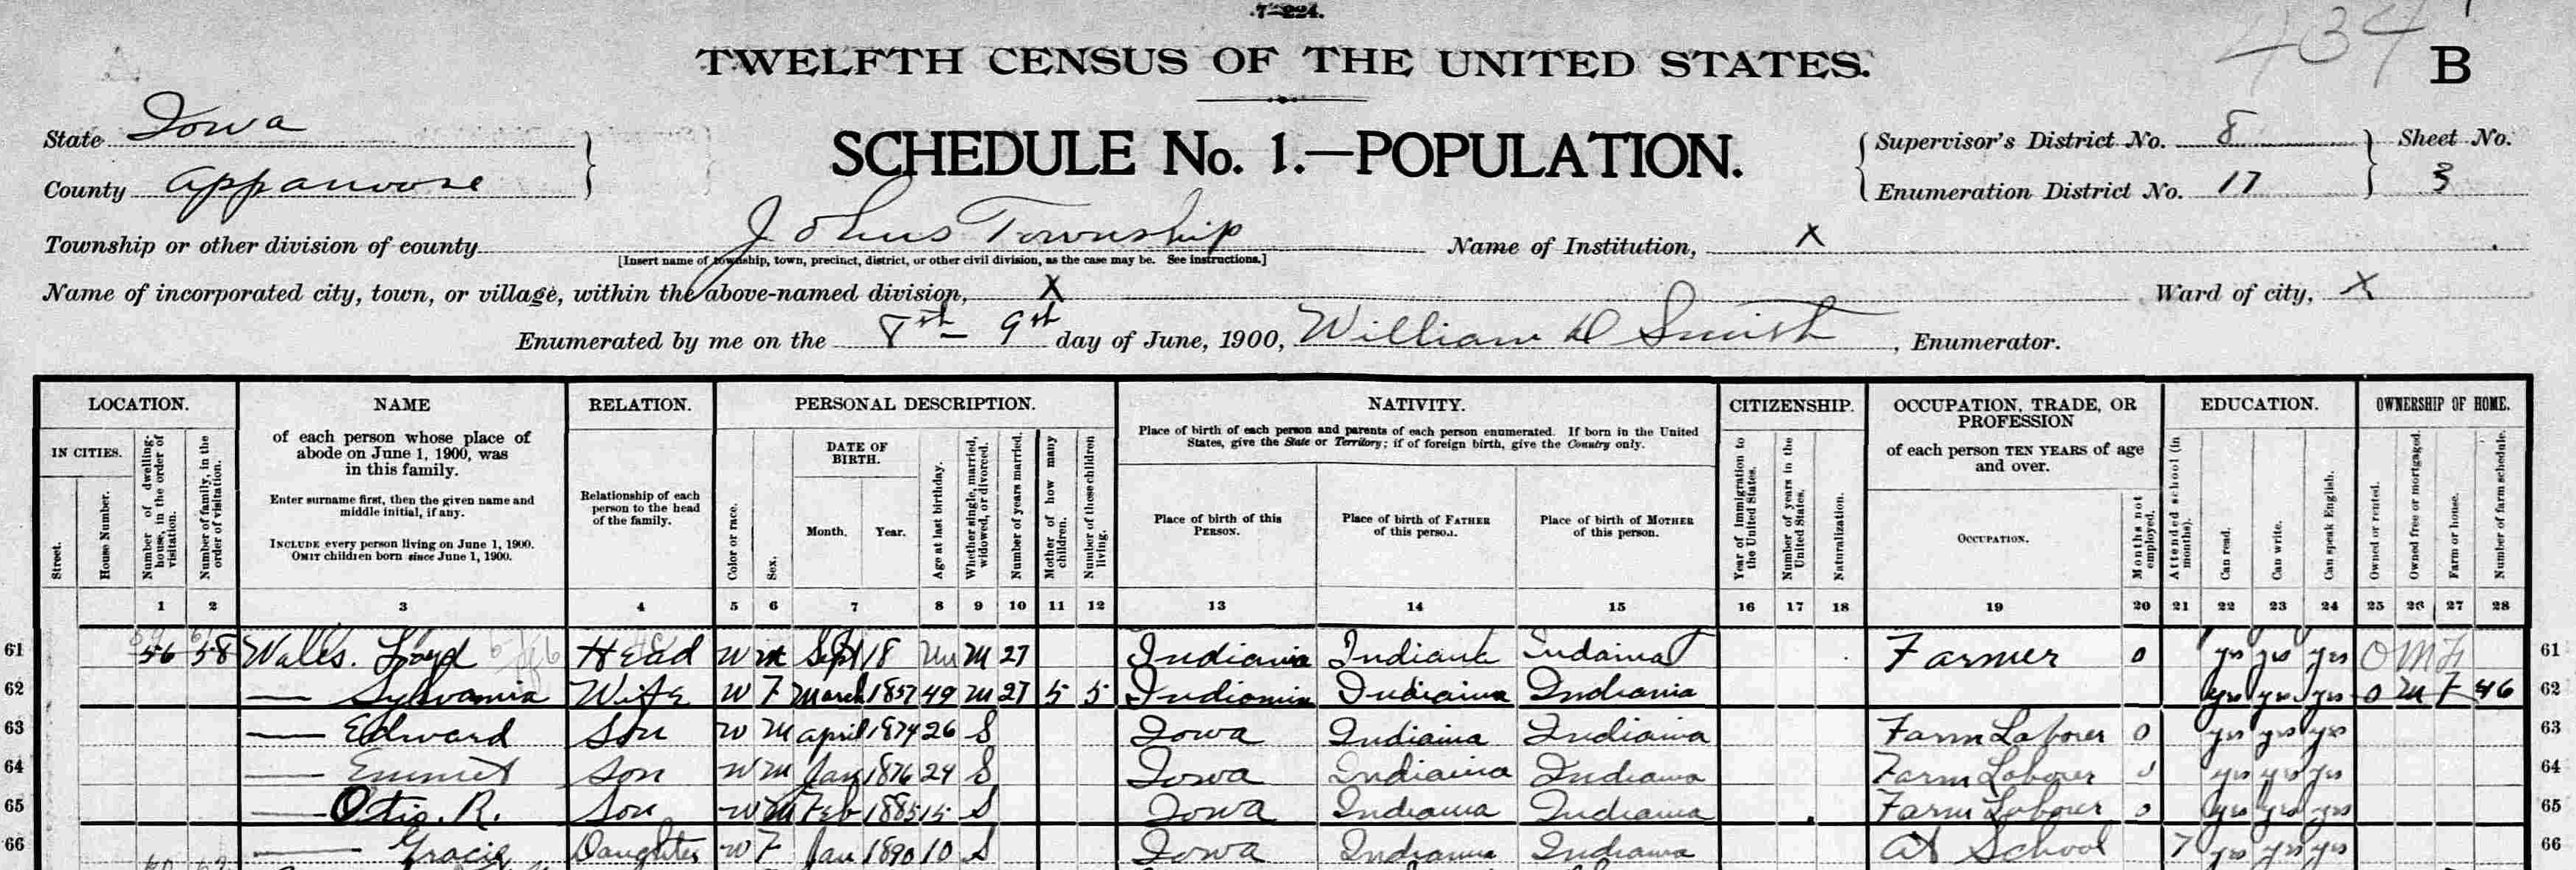 7—224.
434
B
TWELFTH CENSUS OF THE UNITED STATES.
State Iowa
County Appanoose
SCHEDULE No. 1.—POPULATION.
Supervisor's District No. 8
Enumeration District No. 17
Sheet No.
3
Township or other division of county Johns Township
Name of Institution, X
[Insert name of township, town, precinct, district, or other civil division, as the case may be. See instructions.]
Name of incorporated city, town, or village, within the above-named division, X
Ward of city, X
Enumerated by me on the 8th – 9th day of June, 1900, William D Smith, Enumerator.
LOCATION.
IN CITIES.
Street.
House Number.
Number of dwelling-house, in the order of visitation.
Number of family, in the order of visitation.
NAME
of each person whose place of
abode on June 1, 1900, was
in this family.
Enter surname first, then the given name and
middle initial, if any.
INCLUDE every person living on June 1, 1900.
OMIT children born since June 1, 1900.
RELATION.
Relationship of each
person to the head
of the family.
PERSONAL DESCRIPTION.
Color or race.
Sex.
DATE OF
BIRTH.
Month.
Year.
Age at last birthday.
Whether single, married, widowed, or divorced.
Number of years married.
Mother of how many children.
Number of these children living.
NATIVITY.
Place of birth of each person and parents of each person enumerated. If born in the United
States, give the State or Territory; if of foreign birth, give the Country only.
Place of birth of this
PERSON.
Place of birth of FATHER
of this person.
Place of birth of MOTHER
of this person.
CITIZENSHIP.
Year of immigration to the United States.
Number of years in the United States.
Naturalization.
OCCUPATION, TRADE, OR
PROFESSION
of each person TEN YEARS of age
and over.
OCCUPATION.
Months not employed.
EDUCATION.
Attended school (in months).
Can read.
Can write.
Can speak English.
OWNERSHIP OF HOME.
Owned or rented.
Owned free or mortgaged.
Farm or house.
Number of farm schedule.
1 2 3 4 5 6 7 8 9 10 11 12 13 14 15 16 17 18 19 20 21 22 23 24 25 26 27 28
61 56 58 Walls. Loyd Head W M Sept 18 Un M 27 Indiania Indiana Indaina Farmer 0 yes yes yes O M F 61
62 — Sylvania Wife W F March 1857 49 M 27 5 5 Indiania Indiaina Indiania yes yes yes O M F 46 62
63 — Edward Son W M April 1874 26 S Iowa Indiaina Indiaina Farm Laborer 0 yes yes yes 63
64 — Emmet Son W M Jan 1876 24 S Iowa Indiaina Indiana Farm Laborer 0 yes yes yes 64
65 — Otis. R. Son W M Feb 1885 15 S Iowa Indiana Indiana Farm Laborer 0 yes yes yes 65
66 — Gracie Daughter W F Jan 1890 10 S Iowa Indiana Indiana At School 7 yes yes yes 66